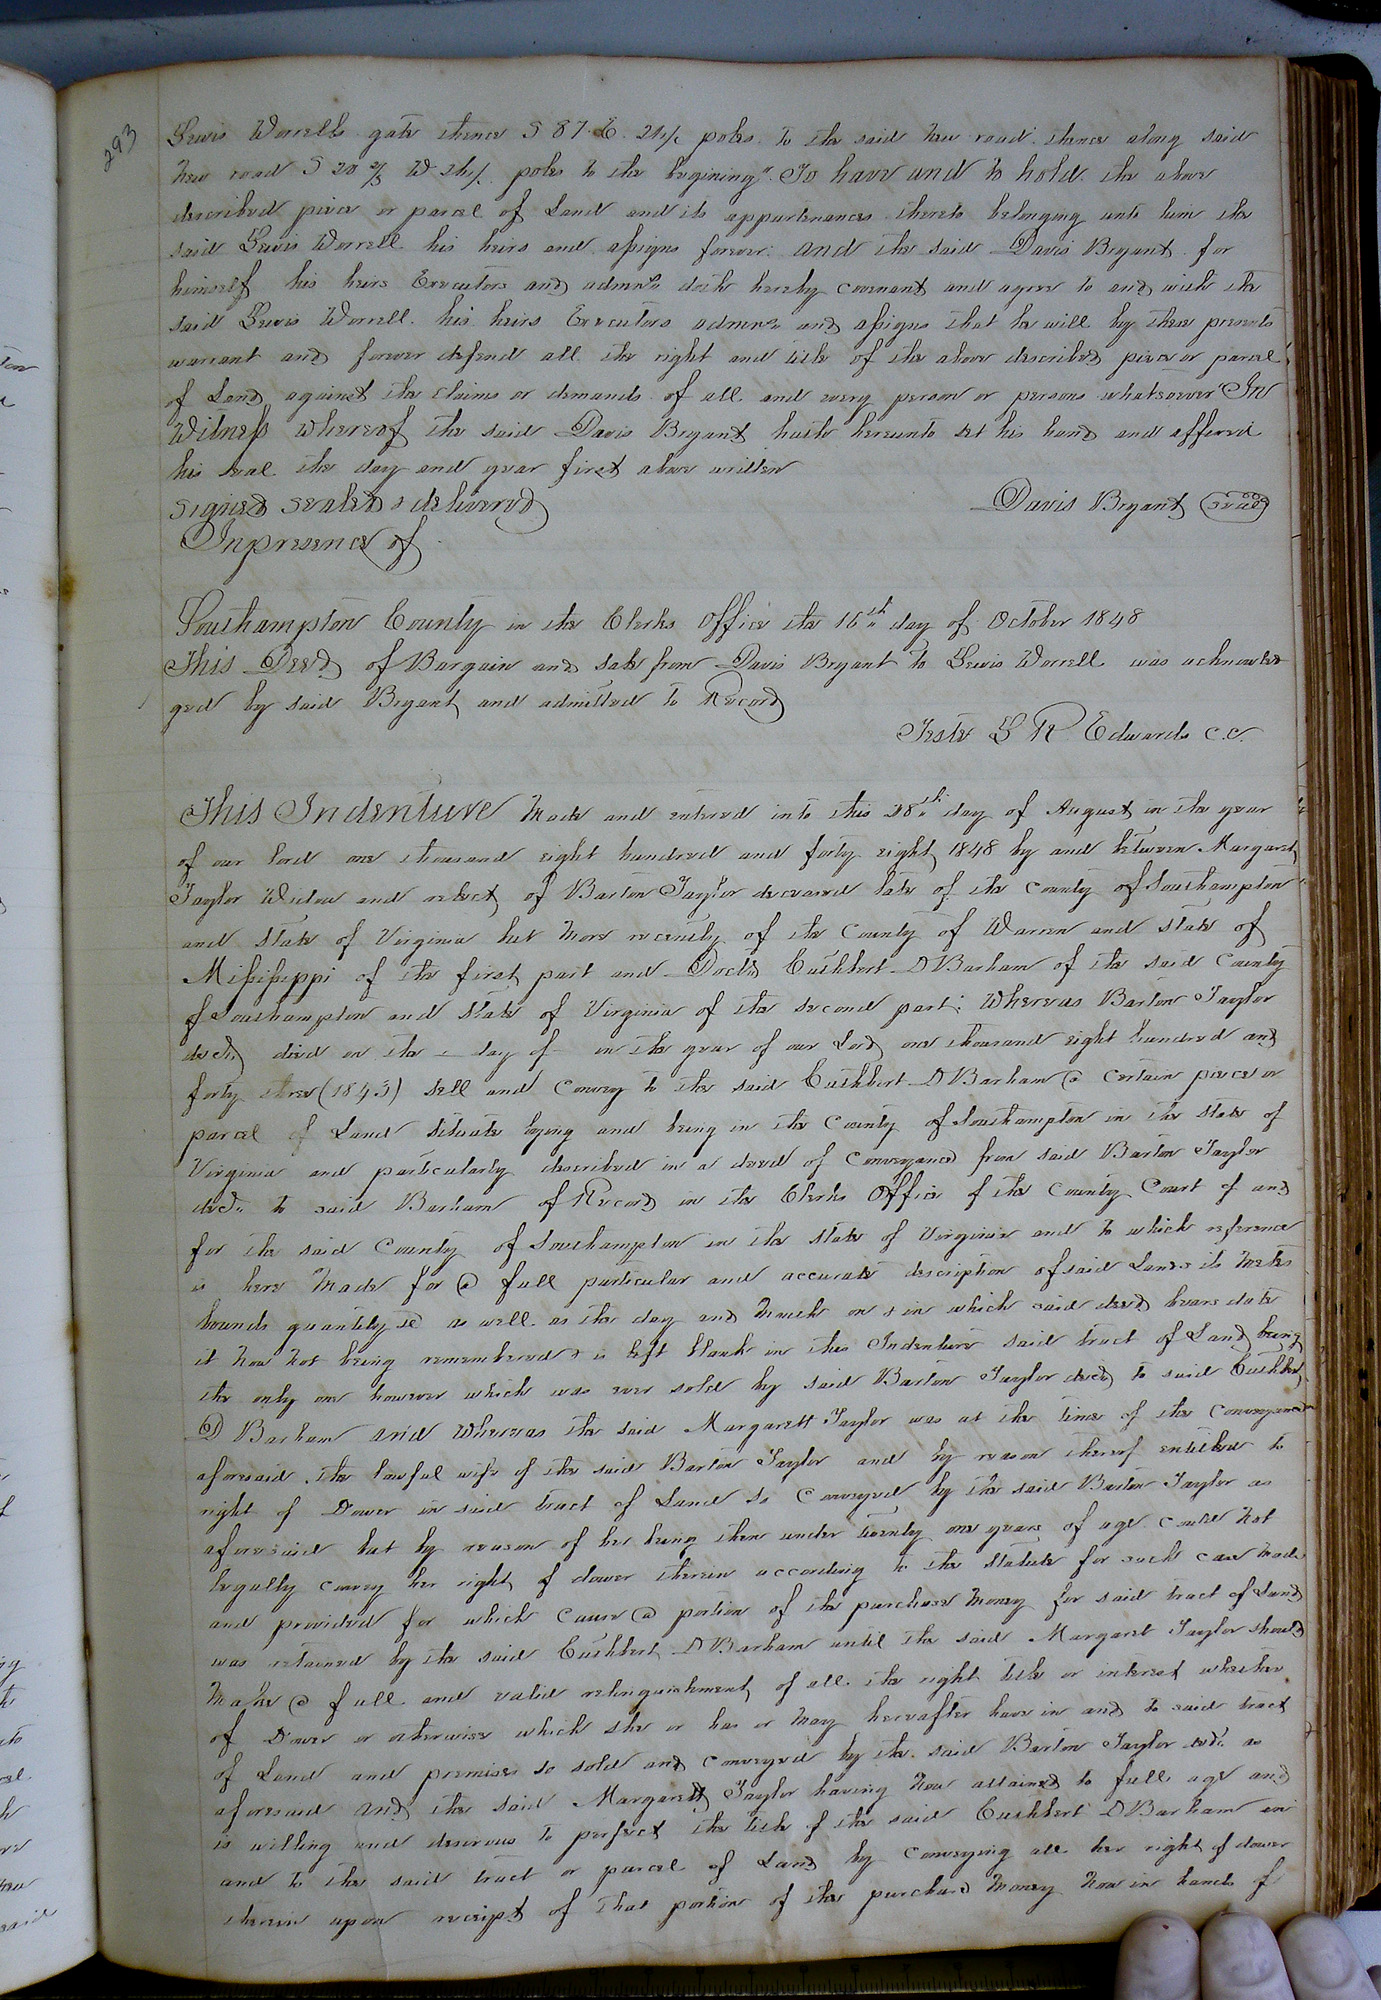 293
Lewis Worrells gate thence S 87. E. 24½ poles to the said new road. thence along said
New road S 20 W 2½ poles to the begining". To have and to hold the above
described piece or parcel of Land and its appurtenances thereto belonging unto him the
said Lewis Worrell his heirs and assigns forever. and the said Davis Bryant for
himself his heirs Executors and admrs doth hereby covenant and agree to and with the
said Lewis Worrell his heirs Executors admrs and assigns that he will by these presents
warrant and forever defend all the right and title of the above described piece or parcel
of Land against the claims or demands of all and every person or persons whatsoever In
Witness whereof the said Davis Bryant hath hereunto set his hand and affixed
his seal the day and year first above written
Signed sealed & delivered Davis Bryant (seal)
In presence of
Southampton County in the Clerks Office the 16th day of October 1848
This Deed of Bargain and sale from Davis Bryant to Lewis Worrell was acknowled
ged by said Bryant and admitted to Record
Teste L R Edwards c.c.
This Indenture Made and entered into this 28th day of August in the year
of our lord one thousand eight hundred and forty eight 1848 by and between Margaret
Taylor Widow and relect of Barton Taylor deceased late of the County of Southampton
and State of Virginia but More recently of the County of Warren and State of
Mississeppi of the first part and Doctr Cuthbert D Barham of the said County
of Southampton and State of Virginia of the second part: Whereas Barton Taylor
decd, died on the — day of — in the year of our Lord one thousand eight hundred and
forty three (1843) sell and convey to the said Cuthbert D Barham a certain piece or
parcel of Land situate lying and being in the County of Southampton in the State of
Virginia and particularly described in a deed of Conveyance from said Barton Taylor
decd. to said Barham of Record in the Clerks Office of the County Court of and
for the said County of Southampton in the State of Virginia and to which reference
is here Made for a full particular and accurate description of said Land its Metes
bounds quantity &c as well as the day and Month on & in which said deed bears date
it now not being remembered & is left blank in this Indenture said tract of Land being
the only one however which was ever sold by said Barton Taylor decd to said Cuthbert
D Barham and Whereas the said Margarett Taylor was at the time of the Conveyance
aforesaid. the lawful wife of the said Barton Taylor and by reason thereof entitled to
right of Dower in said tract of Land so Conveyed by the said Barton Taylor as
aforesaid but by reason of her being then under twenty one years of age could Not
legally convey her right of dower therein according to the Statute for such case Made
and provided for which Cause a portion of the purchase Money for said tract of Land
was retained by the said Cuthbert D Barham until the said Margaret Taylor should
Make a full and valid relinquishment of all the right title or interest whether
of Dower or otherwise which she or has or May hereafter have in and to said tract
of Land and premises so sold and Conveyed by the said Barton Taylor decd. as
aforesaid and the said Margarett Taylor having Now attained to full age and
is willing and desirous to perfect the title of the said Cuthbert D Barham in
and to the said tract or parcel of Land by Conveying all her right of dower
therein upon receipt of that portion of the purchase Money Now in hands of